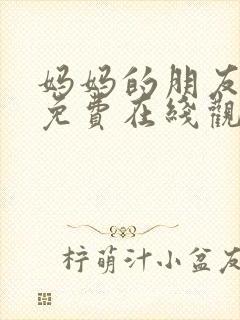 妈妈的朋友
免費在綫觀
柠萌汁小盆友